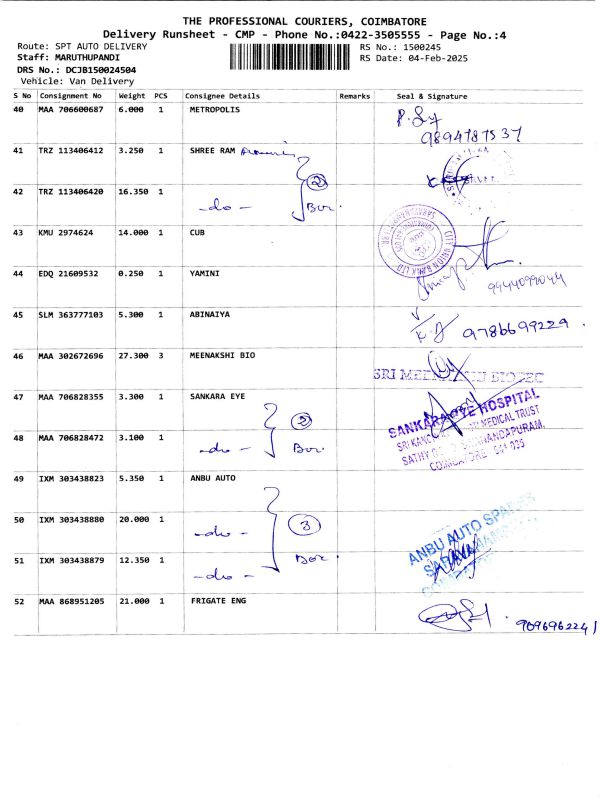 THE PROFESSIONAL COURIERS, COIMBATORE
Delivery Runsheet - CMP - Phone No.:0422-3505555 - Page No.:4
Route: SPT AUTO DELIVERY
RS No.: 1500245
Staff: MARUTHUPANDI
RS Date: 04-Feb-2025
DRS No.: DCJB150024504
Vehicle: Van Delivery
S No Consignment No Weight PCS Consignee Details Remarks Seal & Signature
40 MAA 706600687 6.000 1 METROPOLIS
9894787537
41 TRZ 113406412 3.250 1 SHREE RAM
42 TRZ 113406420 16.350 1
-do- 2 Box.
43 KMU 2974624 14.000 1 CUB
CITY UNION BANK LTD
44 EDQ 21609532 0.250 1 YAMINI
9444099044
45 SLM 363777103 5.300 1 ABINAIYA
9786699229
46 MAA 302672696 27.300 3 MEENAKSHI BIO
SRI BIOTEC
47 MAA 706828355 3.300 1 SANKARA EYE
SANKARA EYE HOSPITAL
MEDICAL TRUST
48 MAA 706828472 3.100 1
-do- 2 Box.
SATHY
COIMBATORE 641 035
49 IXM 303438823 5.350 1 ANBU AUTO
50 IXM 303438880 20.000 1
-do- 3
ANBU AUTO SPARES
51 IXM 303438879 12.350 1
-do- Box.
52 MAA 868951205 21.000 1 FRIGATE ENG
9096962241